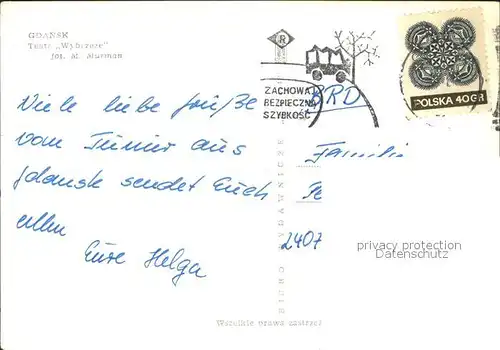 GDAŃSK
Teatr „Wybrzeże"
fot. M. Murman
ZACHOWAJ
BEZPIECZNĄ
SZYBKOŚĆ
POLSKA 40 GR
BRD
Viele liebe Grüße
vom Turnier aus
Gdansk sendet Euch
allen
Eure Helga
Familie
2407
privacy protection
Datenschutz
Wszelkie prawa zastrzeż.